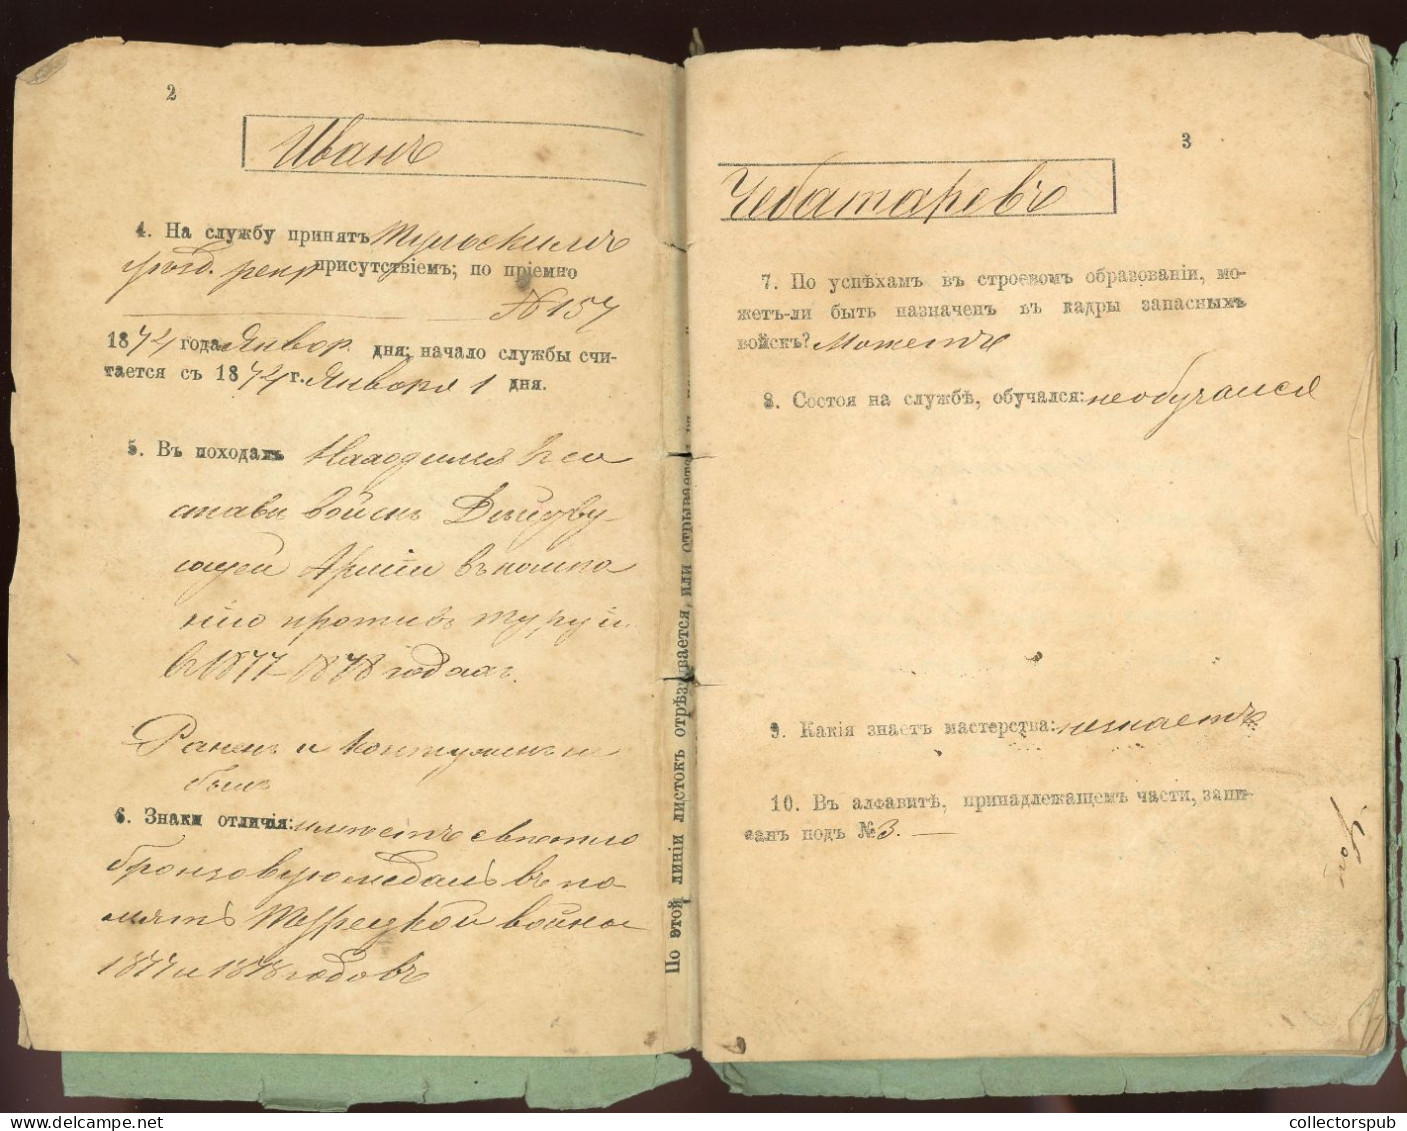 2
Иванъ
4. На службу принятъ Тульскимъ
уѣзд. рекр присутствіемъ; по пріемно
№ 157
1874 года Январ. дня; начало службы счи-
тается съ 1874 г. Января 1 дня.
5. Въ походахъ Находился въ со
ставѣ войскъ Дѣйству-
ющей Арміи въ кампа
нію противъ турціи
въ 1877-1878 годахъ.
Раненъ и контуженъ не
былъ
6. Знаки отличія: имѣетъ свѣтло
бронзовую медаль въ па
мять Турецкой войны
1877 и 1878 годовъ
По этой линіи листокъ отрѣзывается, или отрывается
3
Чебатаревъ
7. По успѣхамъ въ строевомъ образованіи, мо-
жетъ-ли быть назначенъ въ кадры запасныхъ
войскъ? Можетъ
8. Состоя на службѣ, обучался: необучался
9. Какія знаетъ мастерства: незнаетъ
10. Въ алфавитѣ, принадлежащемъ части, запи-
санъ подъ № 3. —
collectorspub.com